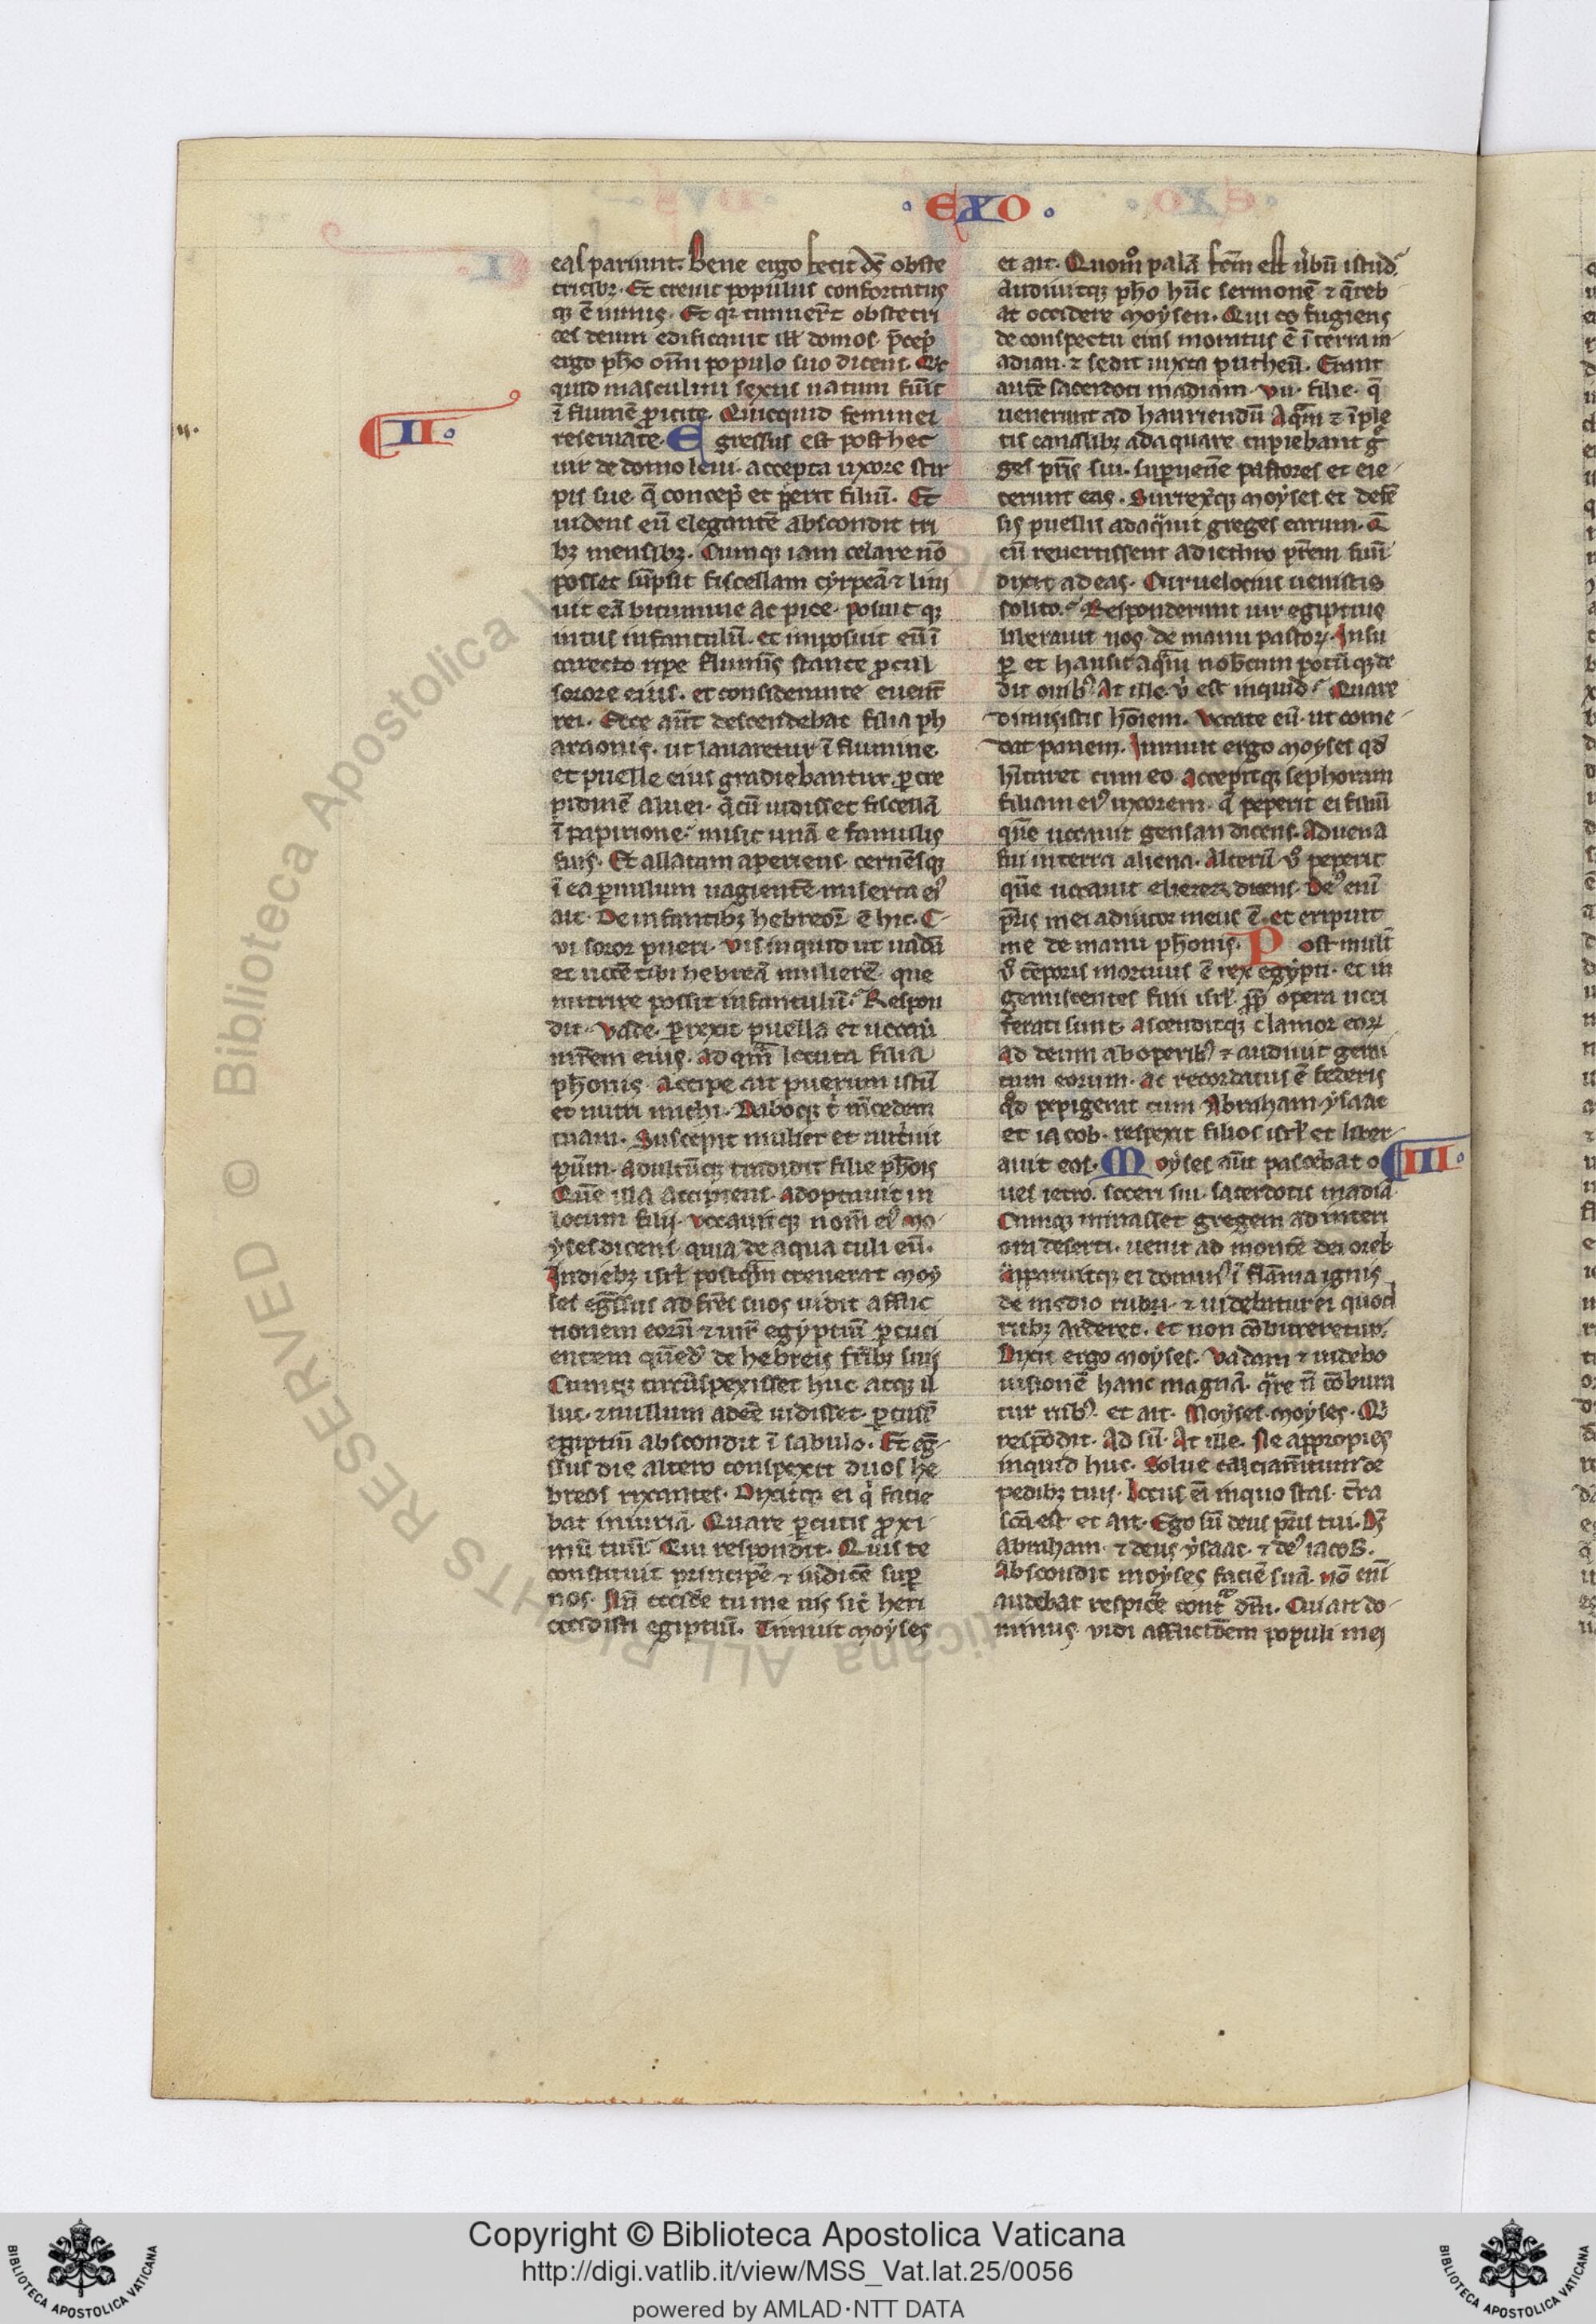 · EXO ·
eas pariunt. Bene ergo fecit dš obste
tricibꝫ. Et creuit populus confortatus
qꝫ ē nimis. Et qꝛ timuer̄t obstetri
ces deum edificauit ill̄ domos. p̄cep̄
ergo pho om̄i populo suo dicens. Qc
quid masculini sexus natum fūit
ī flumē ꝓicite. Quicquid feminei
.II.
II.
reseruate. Egressus est post hec
uir de domo leui. accepta uxore stir
pis sue. q̄ concep̄ et peꝑit filiū. Et
uidens eū elegantē abscondit tri
bꝫ mensibꝫ. Cumqꝫ iam celare nō
posset sūpsit fiscellam cyrpeā ⁊ lini
uit eā bitumine ac pice. posuitqꝫ
intus infantulū. et imposuit eū ī
carecto ripe fluminis stante ꝓcul
sorore eius. et considerante euent̄
rei. Ecce aūt descendebat filia ph
araonis. ut lauaretur ī flumine.
et puelle eius gradiebantur. ꝑ cre
pidinē aluei. q̄ cū uidisset fiscellā
ī papirione. misit unā e famulis
suis. Et allatam aperiens. cernēsqꝫ
ī ea ꝑuulum uagientē. miserta eiꝰ
ait. De infantibꝫ hebreoꝝ ē hic. C
ui soror pueri. Vis inquid ut uadā
et uocē tibi hebreā mulierē. que
nutrire possit infantulū. Respon
dit. Vade. ꝑrexit puella et uocaū
mr̄em eius. ad qm̄ locuta filia
phōnis. Accipe ait puerum istū
et nutri michi. Dabo qꝫ t̄ m̄cedem
tuam. Suscepit mulier et nutuit
pūm. Adultūqꝫ tradidit filie phōis
Quē illa accipiens. adoptauit in
locum filij. vocauitqꝫ nom̄ eiꝰ mo
yses dicens. quia de aqua tuli eū.
In diebꝫ isrl̄ postqm̄ creuerat moy
ses eḡssus ad fr̄es suos uidit afflic
tionem eorū ⁊ uiꝝ egyptiū ꝑcuti
entem quēdā de hebreis fr̄ibꝫ suis
Cumqꝫ circūspexisset huc. atqꝫ il
luc. ⁊ nullum adeē uidisset. ꝑcussū
egiptiū abscondit ī sabulo. Et eḡ
ssus die altero conspexit duos he
breos rixantes. Dixitqꝫ ei q̄ facie
bat iniuriā. Quare ꝑcutis ꝓxi
mū tuū. Qui respondit. Quis te
constituit principē ⁊ iudicē suꝑ
nos. Nū occidē tu me uis sic̄ heri
occidisti egiptiū. Timuit moyses
et ait. Quomo palā fc̄m est ūbū istud.
Audiuitqꝫ pho hūc sermonē ⁊ q̄reb
at occidere moysen. Qui co fugiens
de conspectu eius moratus ē ī terra m
adian. ⁊ sedit iuxta putheū. Erant
autē sacerdoti madiam. vii. filie. q̄
uenerunt ad hauriendū Aqm̄ ⁊ īple
tis canalibꝫ adaquare cupiebant ḡ
ges pr̄is sui. suꝑuenē pastores et eie
cerunt eas. Surrex̄qꝫ moyses. et defē
sis puellis adaq̄uit greges earum. Q̄
cū reuertissent ad iethro pr̄em suū
dixit ad eas. Cur uelocius uenistis
solito. Responderunt uir egiptius
liberauit nos de manu pastoꝝ. Insu
ꝑ et hausit aqm̄ nobcum potūqꝫ de
dit ouibꝰ. At ille. v̄ est inquid. Quare
dimisistis hōiem. Vocate eū. ut come
dat panem. Iurauit ergo moyses qd̄
hītaret cum eo. Accepitqꝫ sephoram
filiam eiꝰ uxorem. q̄ peperit ei filiū
quē uocauit gersan dicens. Aduena
fui in terra aliena. Alterū v̄o peperit
quē uocauit elyezer dicens. Deꝰ enī
pr̄is mei adiutor meus ē. et eripuit
me de manu phōnis. Post mult̄
v̄o tēporis mortuus ē rex egypti. et in
gemiscentes filii isrl̄. ꝓp̄ opera uoci
ferati sunt. Ascenditqꝫ clamor eoꝝ
ad deum ab operibꝰ. ⁊ audiuit gemi
tum eorum. Ac recordatus ē federis
qd̄ pepigerat cum Abraham. ysaac
et iacob. respexit filios isrl̄ et liber
auit eos. Moyses aūt pascebat o
III.
ues ietro. soceri sui. sacerdotis madiā.
Cumqꝫ minasset gregem ad interi
ora deserti. uenit ad montē dei oreb
Apparuitqꝫ ei dominꝰ ī flāma ignis
de medio rubi. ⁊ uidebatur ei quod
rubꝫ arderet. et non cōbureretur.
Dixit ergo moyses. Vadam ⁊ uidebo
uisionē hanc magnā. q̄re n̄ cōbura
tur rubꝰ. et ait. Moyses. moyses. Q̄
respōdit. Ad sū. At ille. Ne appropies
inquid huc. Solue calciam̄tum de
pedibꝫ tuis. Locus eī in quo stas. t̄ra
scā est et ait. Ego sū deus pr̄is tui. Dꝫ
Abraham. ⁊ deus ysaac. ⁊ deꝰ iacob.
Abscondit moyses faciē suā. nō enī
audebat respicē cont̄ dm̄. Cui ait do
minus. vidi afflictōem populi mei
Copyright © Biblioteca Apostolica Vaticana
http://digi.vatlib.it/view/MSS_Vat.lat.25/0056
powered by AMLAD·NTT DATA
BIBLIOTECA APOSTOLICA VATICANA
BIBLIOTECA APOSTOLICA VATICANA